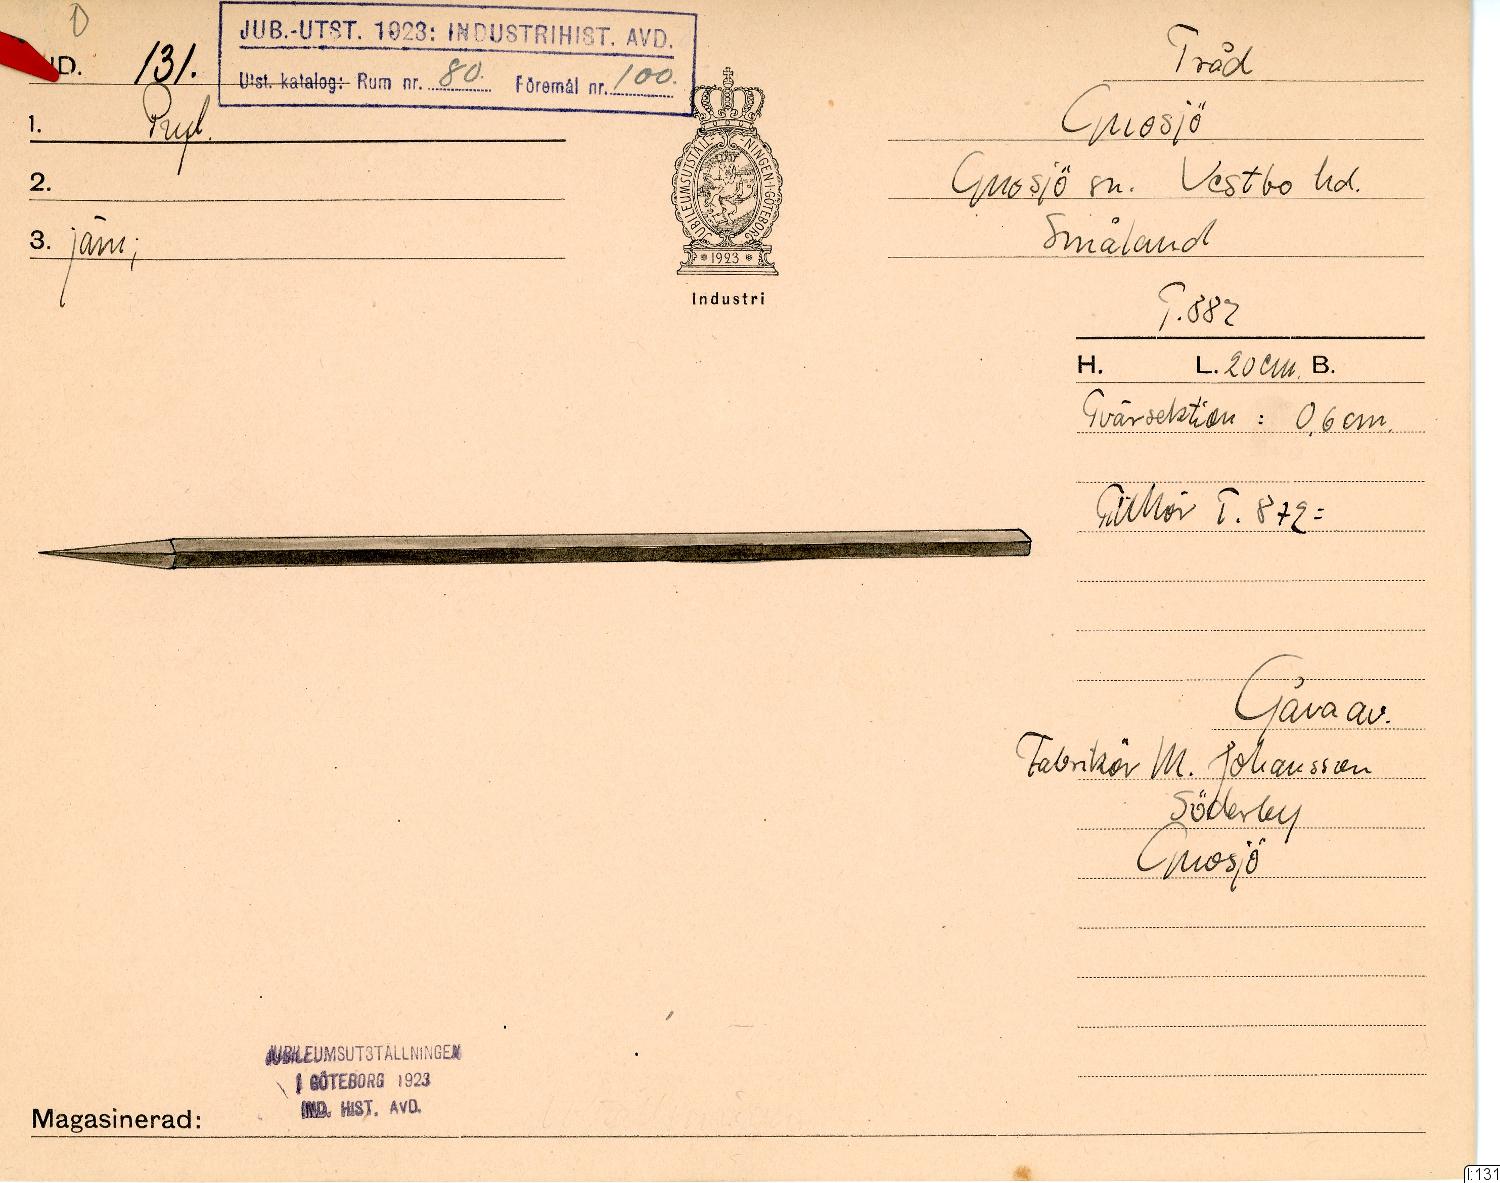 D
IND. 131.
JUB.-UTST. 1923: INDUSTRIHIST. AVD.
Utst. katalog: Rum nr. 80. Föremål nr. 100.
1. Pryl.
2.
3. järn;
JUBILEUMSUTSTÄLLNINGEN I GÖTEBORG
* 1923 *
Industri
Tråd
Gnosjö
Gnosjö sn. Vestbo hd.
Småland
T.882
H. L. 20 cm. B.
Tvärsektion : 0,6 cm.
Tillhör T. 872=
Gåva av.
Fabrikör M. Johansson
Söderby
Gnosjö
JUBILEUMSUTSTÄLLNINGEN
I GÖTEBORG 1923
IND. HIST. AVD.
Magasinerad:
I:131